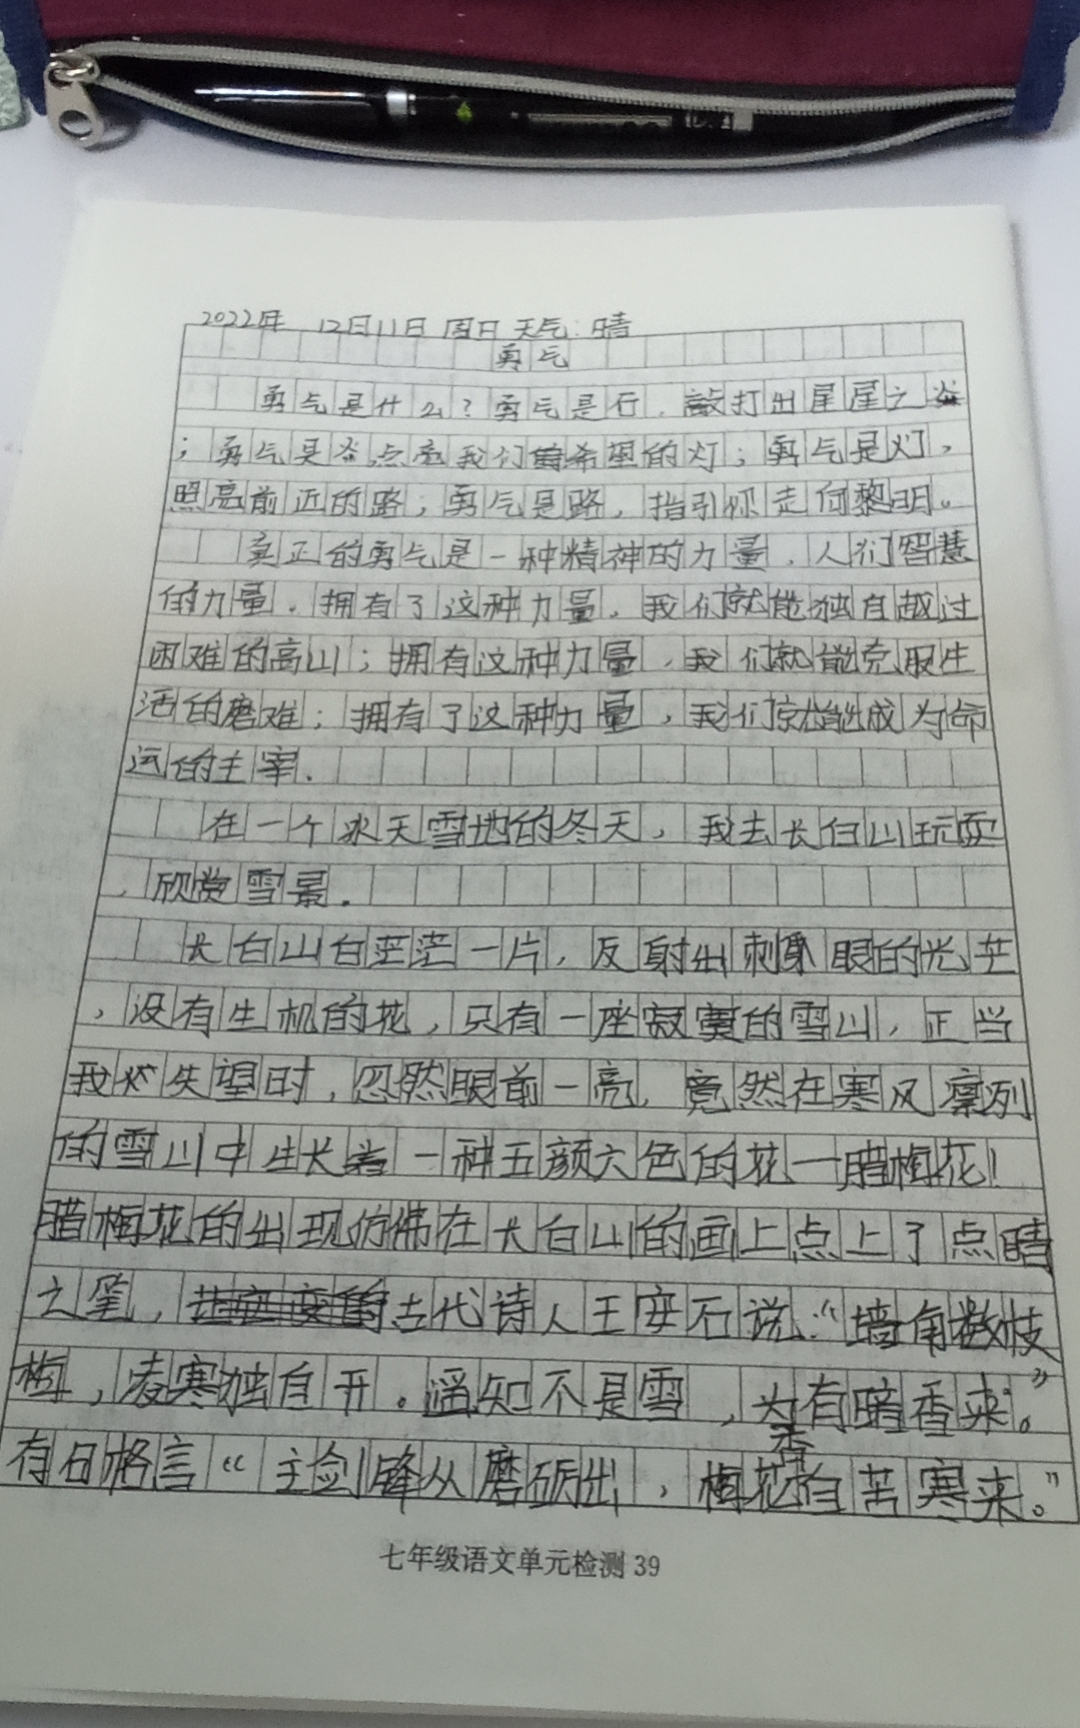 2022年 12月11日 周日 天气:晴
勇气
勇气是什么？勇气是石，敲打出星星之炎
；勇气是炎，点亮我们的希望的灯；勇气是灯，
照亮前近的路；勇气是路，指引你走向黎明。
真正的勇气是一种精神的力量，人们智慧
的力量。拥有了这种力量，我们就能独自越过
困难的高山；拥有这种力量，我们就能克服生
活的磨难；拥有了这种力量，我们就能成为命
运的主宰。
在一个冰天雪地的冬天，我去长白山玩耍
，欣赏雪景。
长白山白茫茫一片，反射出刺眼的光芒
，没有生机的花，只有一座寂寞的雪山，正当
我失望时，忽然眼前一亮，竟然在寒风凛冽
的雪山中生长着一种五颜六色的花—腊梅花！
腊梅花的出现仿佛在长白山的画上点上了点睛
之笔，古代诗人王安石说：“墙角数枝
梅，凌寒独自开。遥知不是雪，为有暗香来。”
有曰格言“主剑锋从磨砺出，梅花香自苦寒来。”
七年级语文单元检测 39